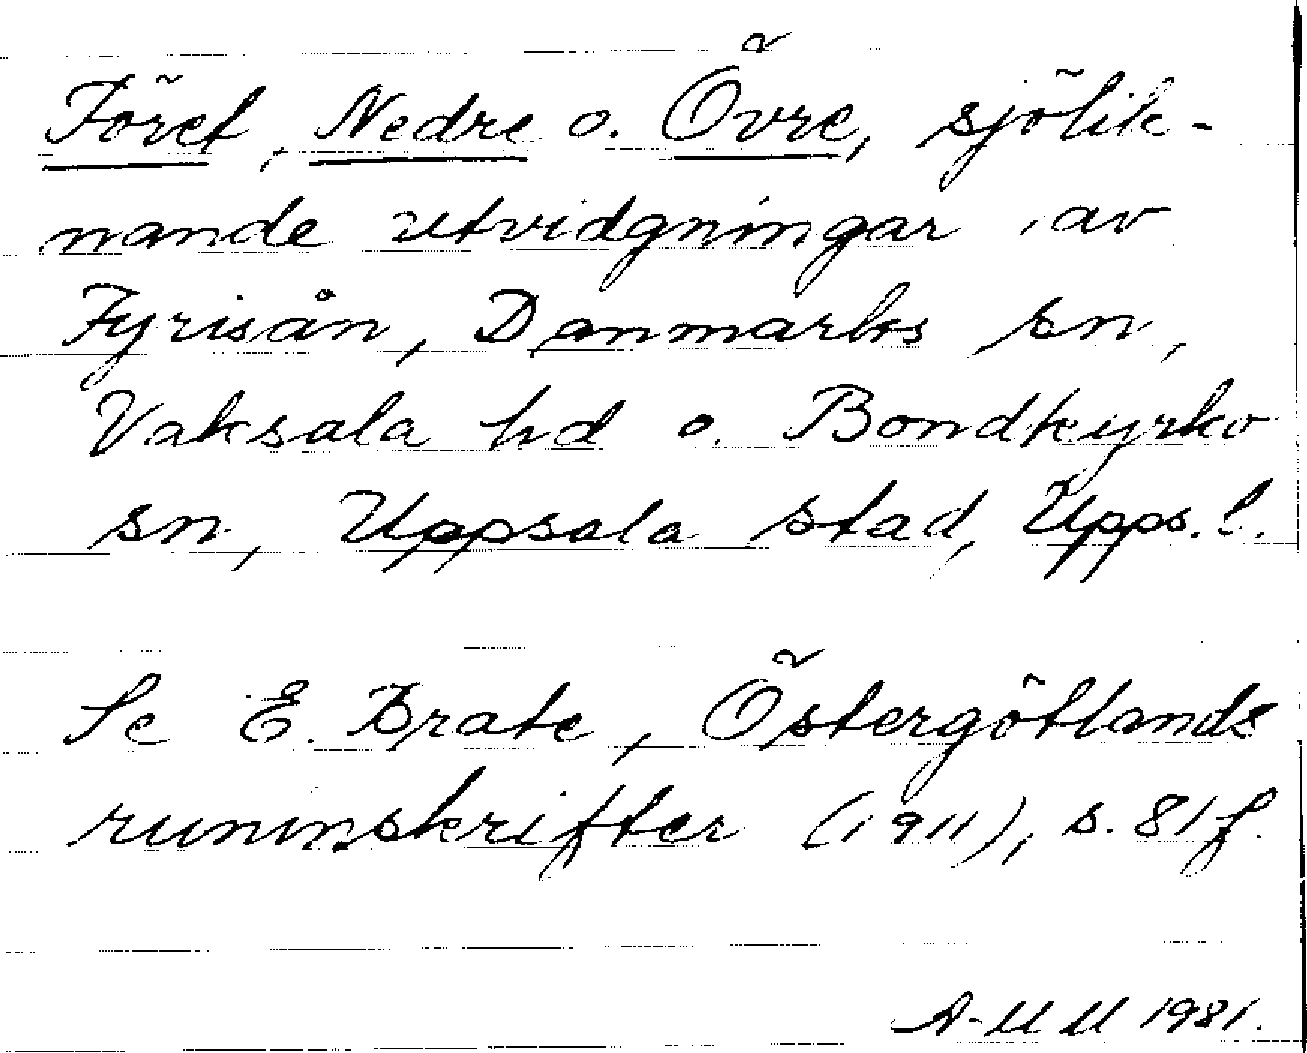 Föret, Nedre o. Övre, sjölik-
nande utvidgningar av
Fyrisån, Danmarks sn,
Vaksala hd o. Bondkyrko
sn, Uppsala stad, Upps. l.
Se E. Brate, Östergötlands
runinskrifter (1911), s. 81 f.
A-MM 1981.